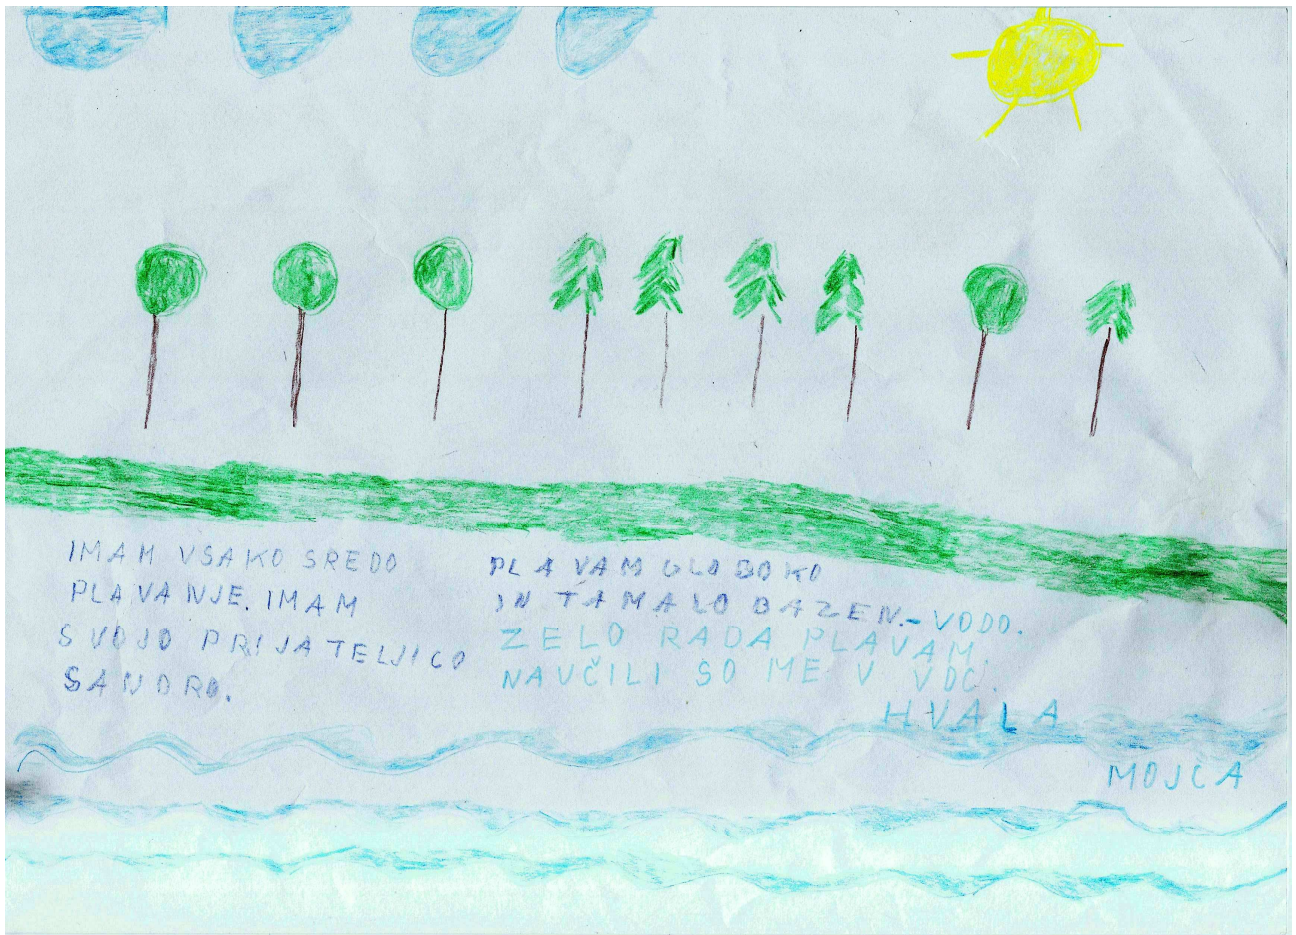 IMAM VSAKO SREDO
PLAVANJE. IMAM
SVOJO PRIJATELJICO
SANDRO.
PLAVAM GLOBOKO
IN TAMALO BAZEN.-VODO.
ZELO RADA PLAVAM.
NAVČILI SO ME V VDC.
HVALA
MOJCA